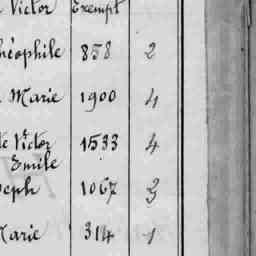 Victor Exempt
héophile 858 2
Marie 1900 4
te Victor 1533 4
Emile
seph 1067 3
Marie 314 1